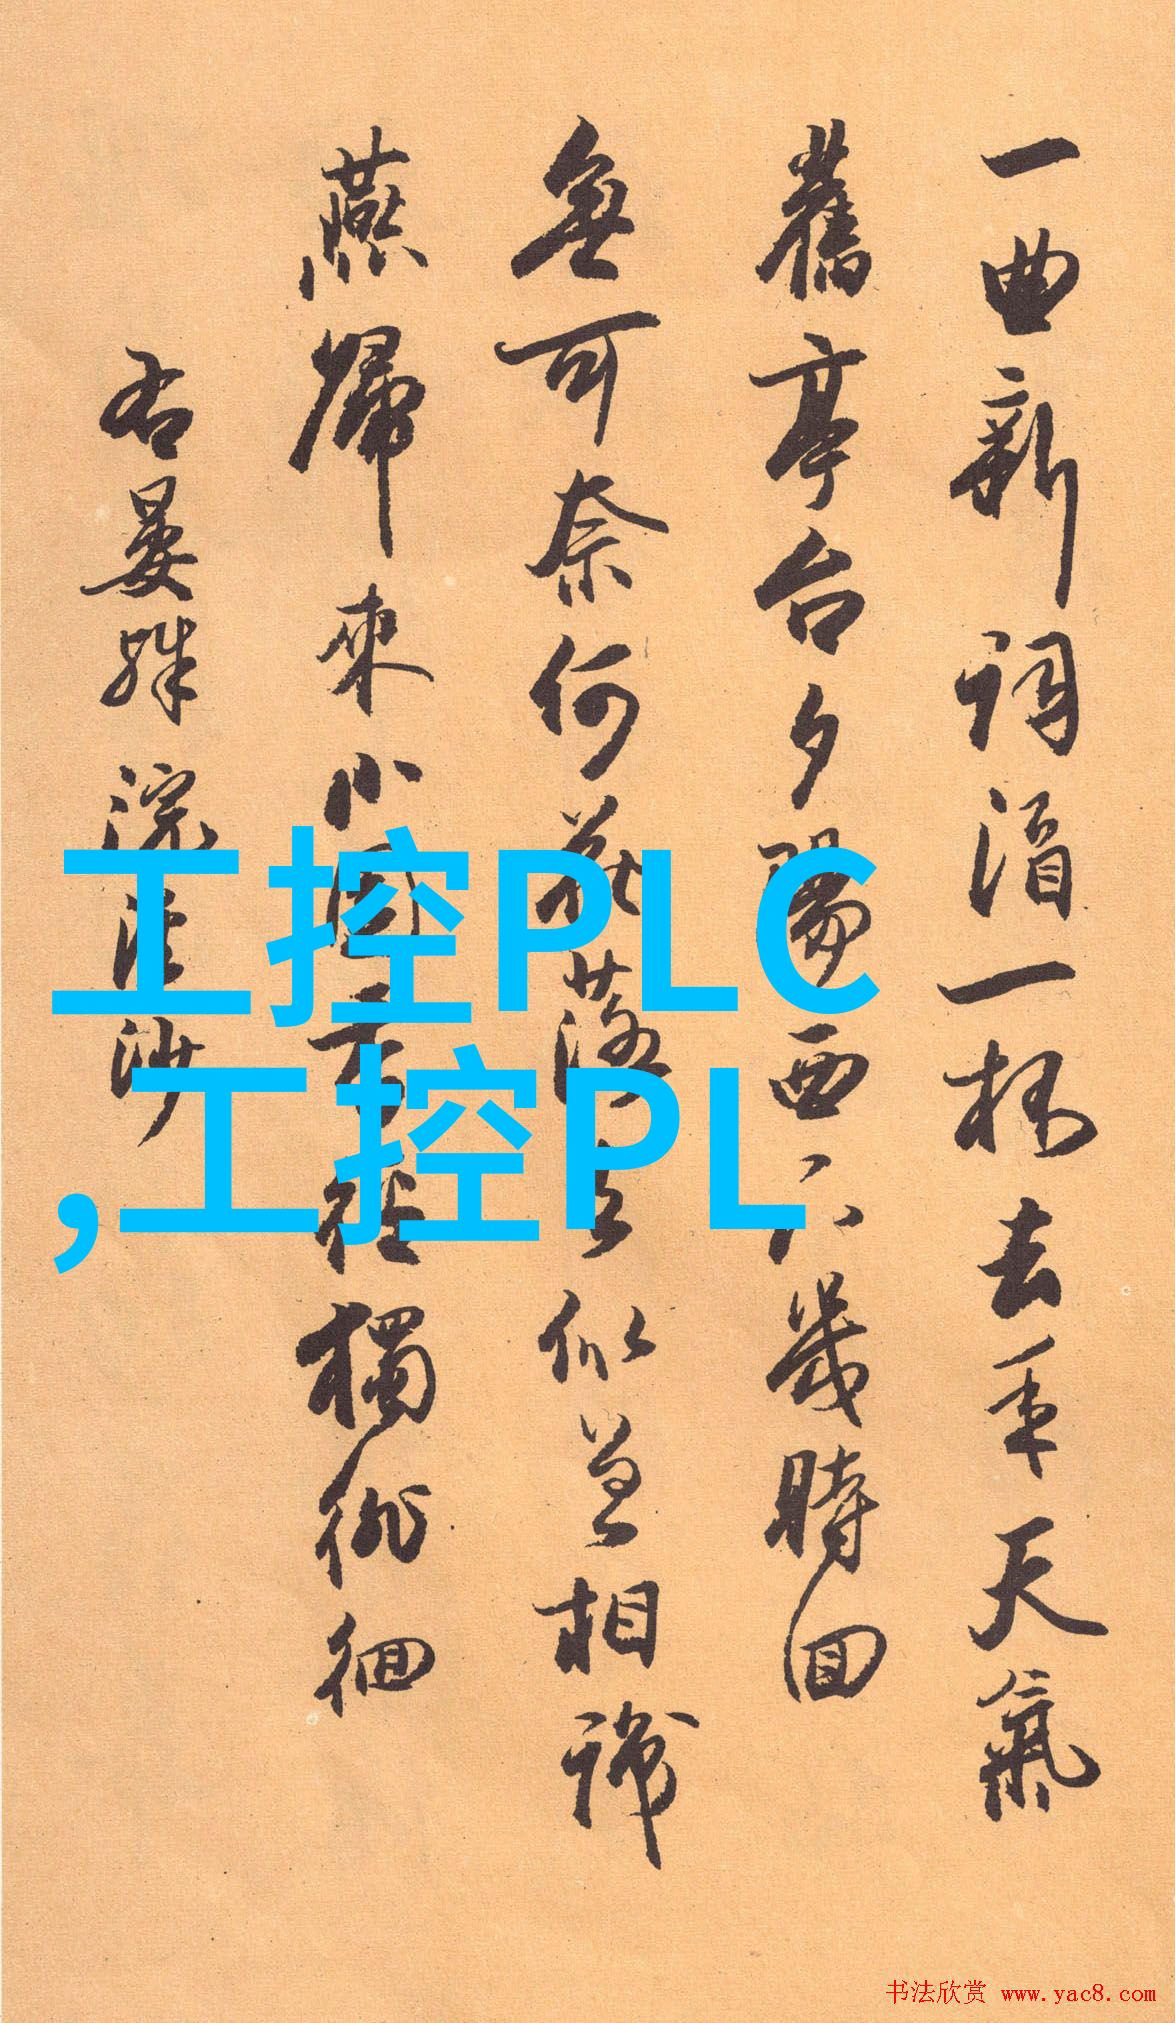 一曲新詞酒一杯去年天氣
舊亭台夕陽西下幾時回
無可奈何花落去似曾相識
燕歸來小園香徑獨徘徊
右晏殊浣溪沙
工控PLC
,工控PL
书法欣赏 www.yac8.com